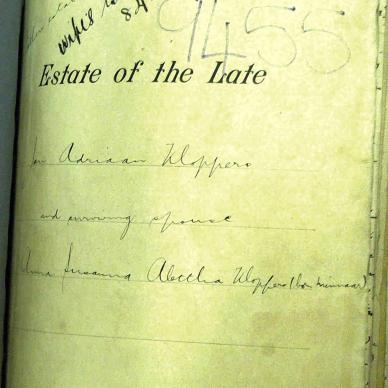 wife's
84
9455
Estate of the Late
Jan Adriaan Kloppers
and surviving spouse
Anna Susanna Aletha Kloppers (born Minnaar)